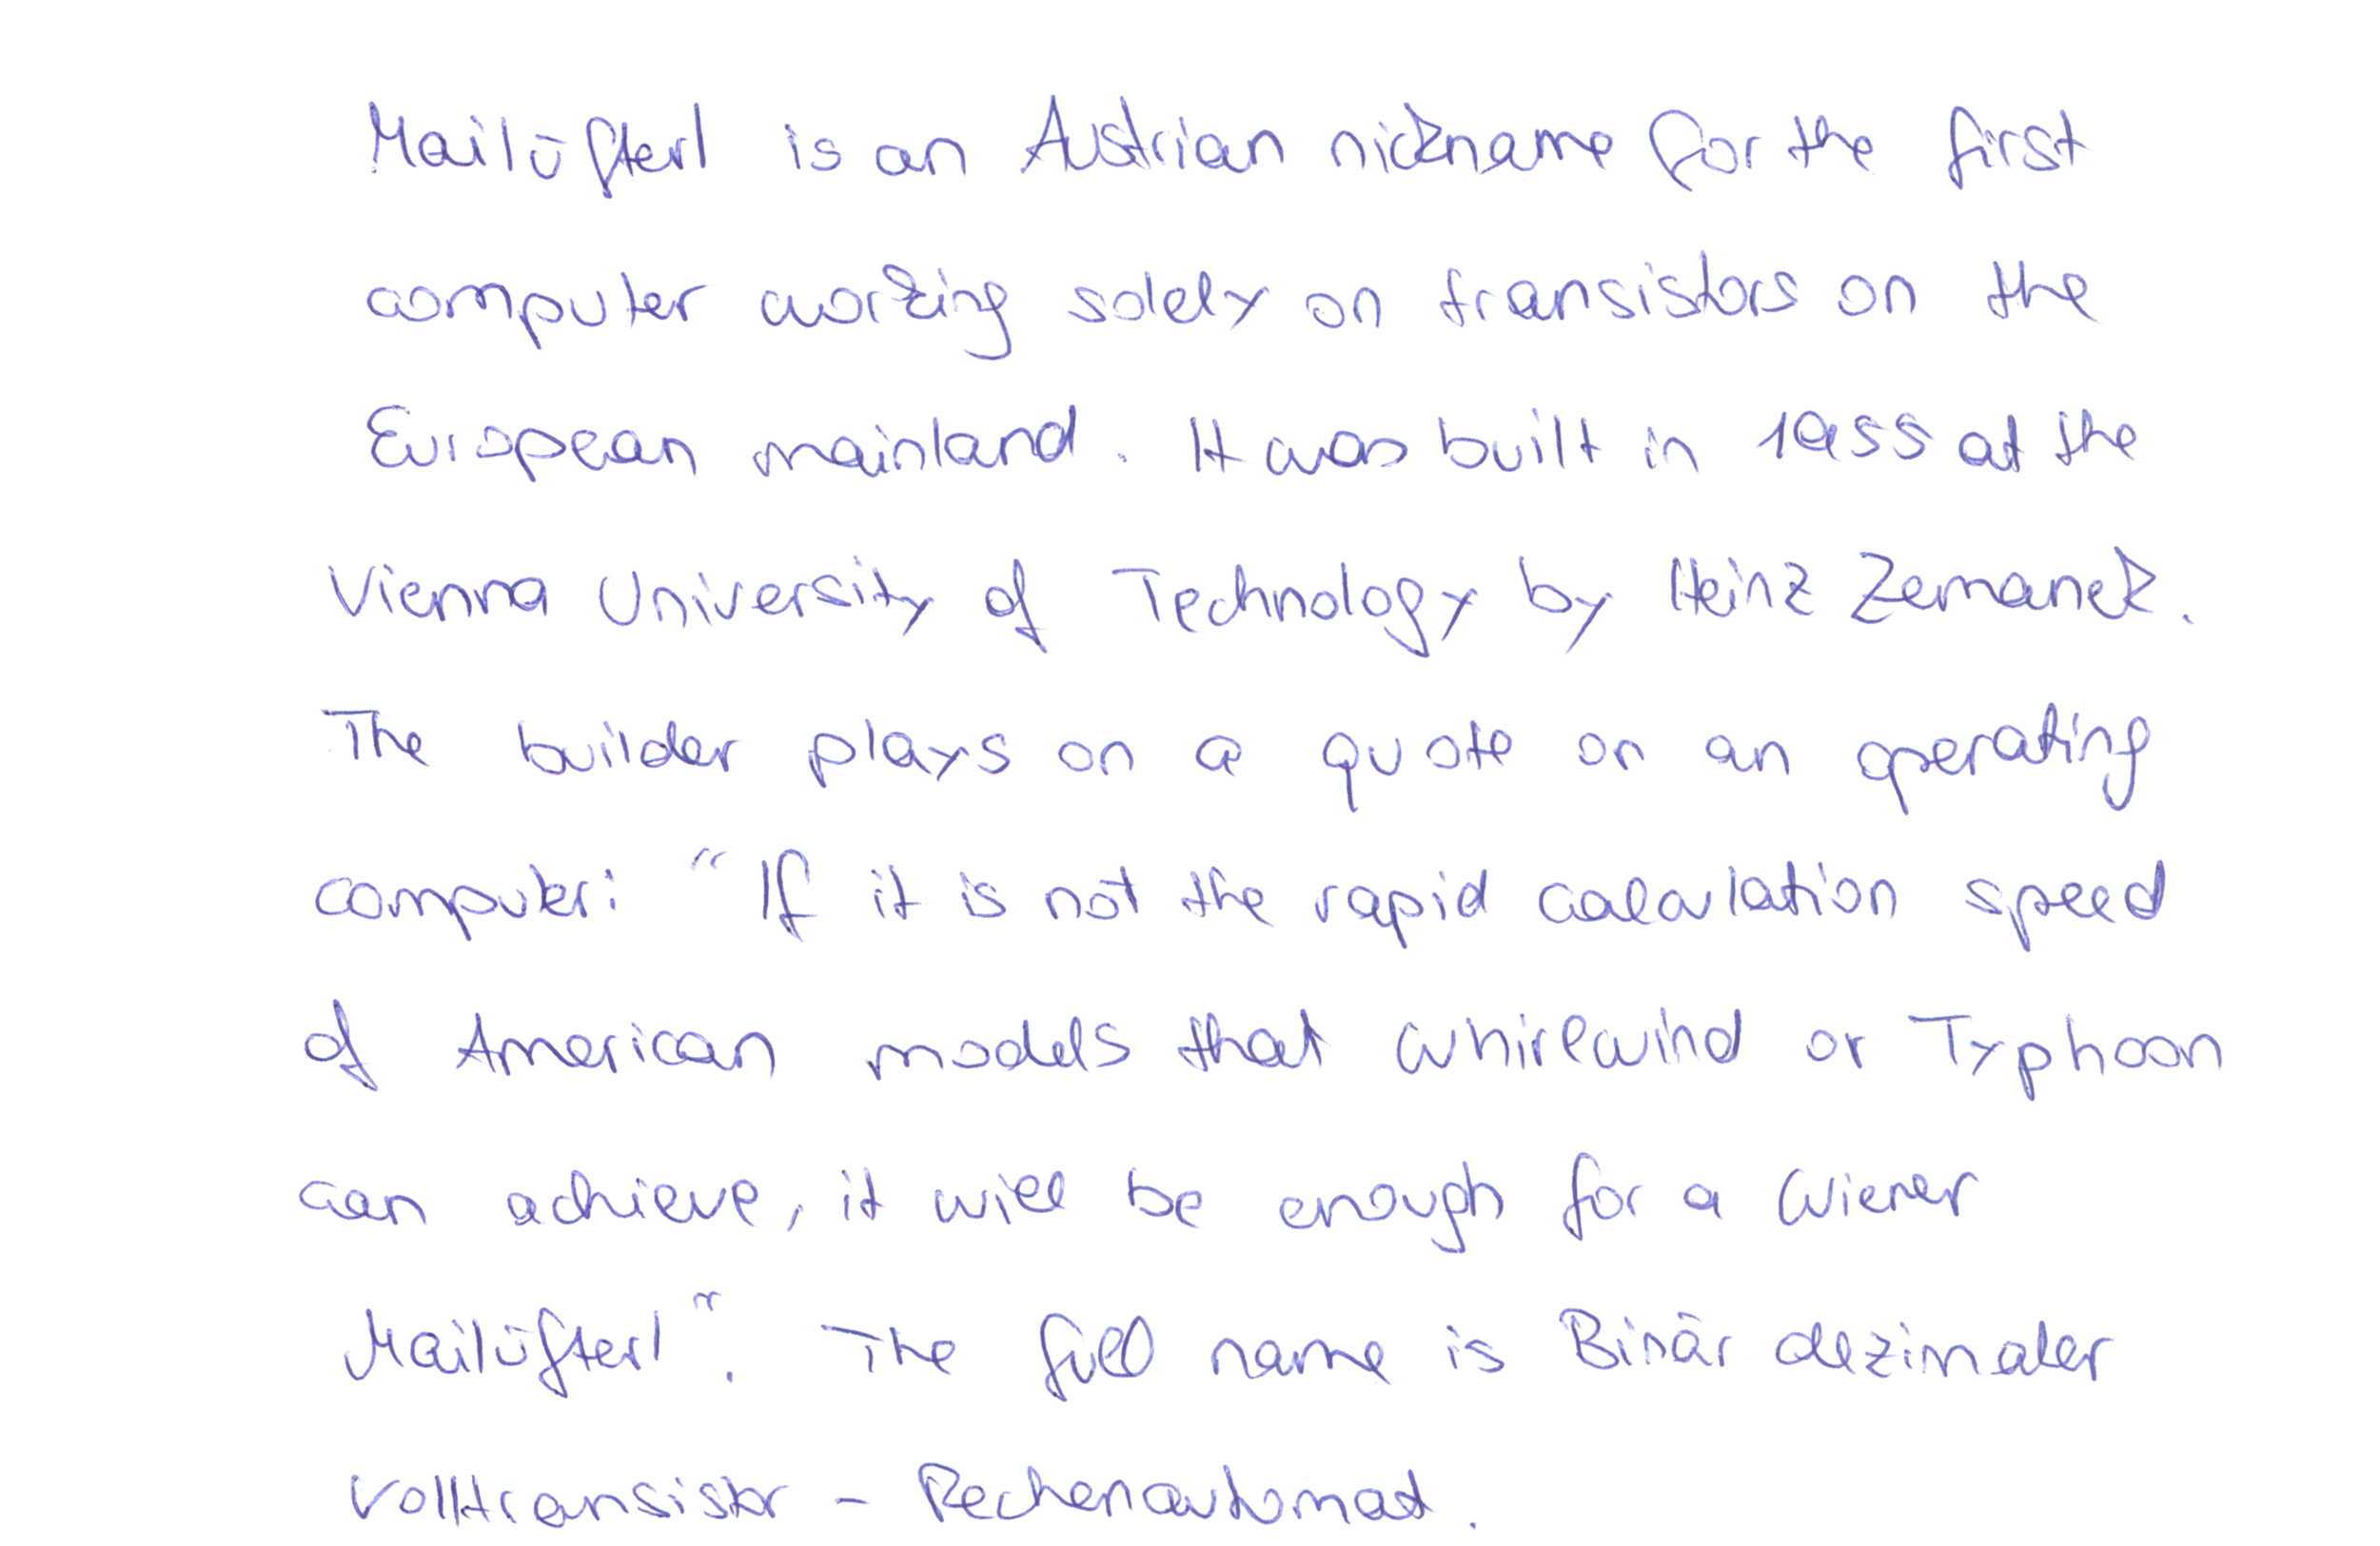 Mailüfterl is an Austrian nickname for the first
computer working solely on transistors on the
European mainland. It was built in 1955 at the
Vienna University of Technology by Heinz Zemanek.
The builder plays on a quote on an operating
computer: "If it is not the rapid calculation speed
of American models that Whirlwind or Typhoon
can achieve, it will be enough for a Wiener
Mailüfterl". The full name is Binär dezimaler
Volltransistor - Rechenautomat.